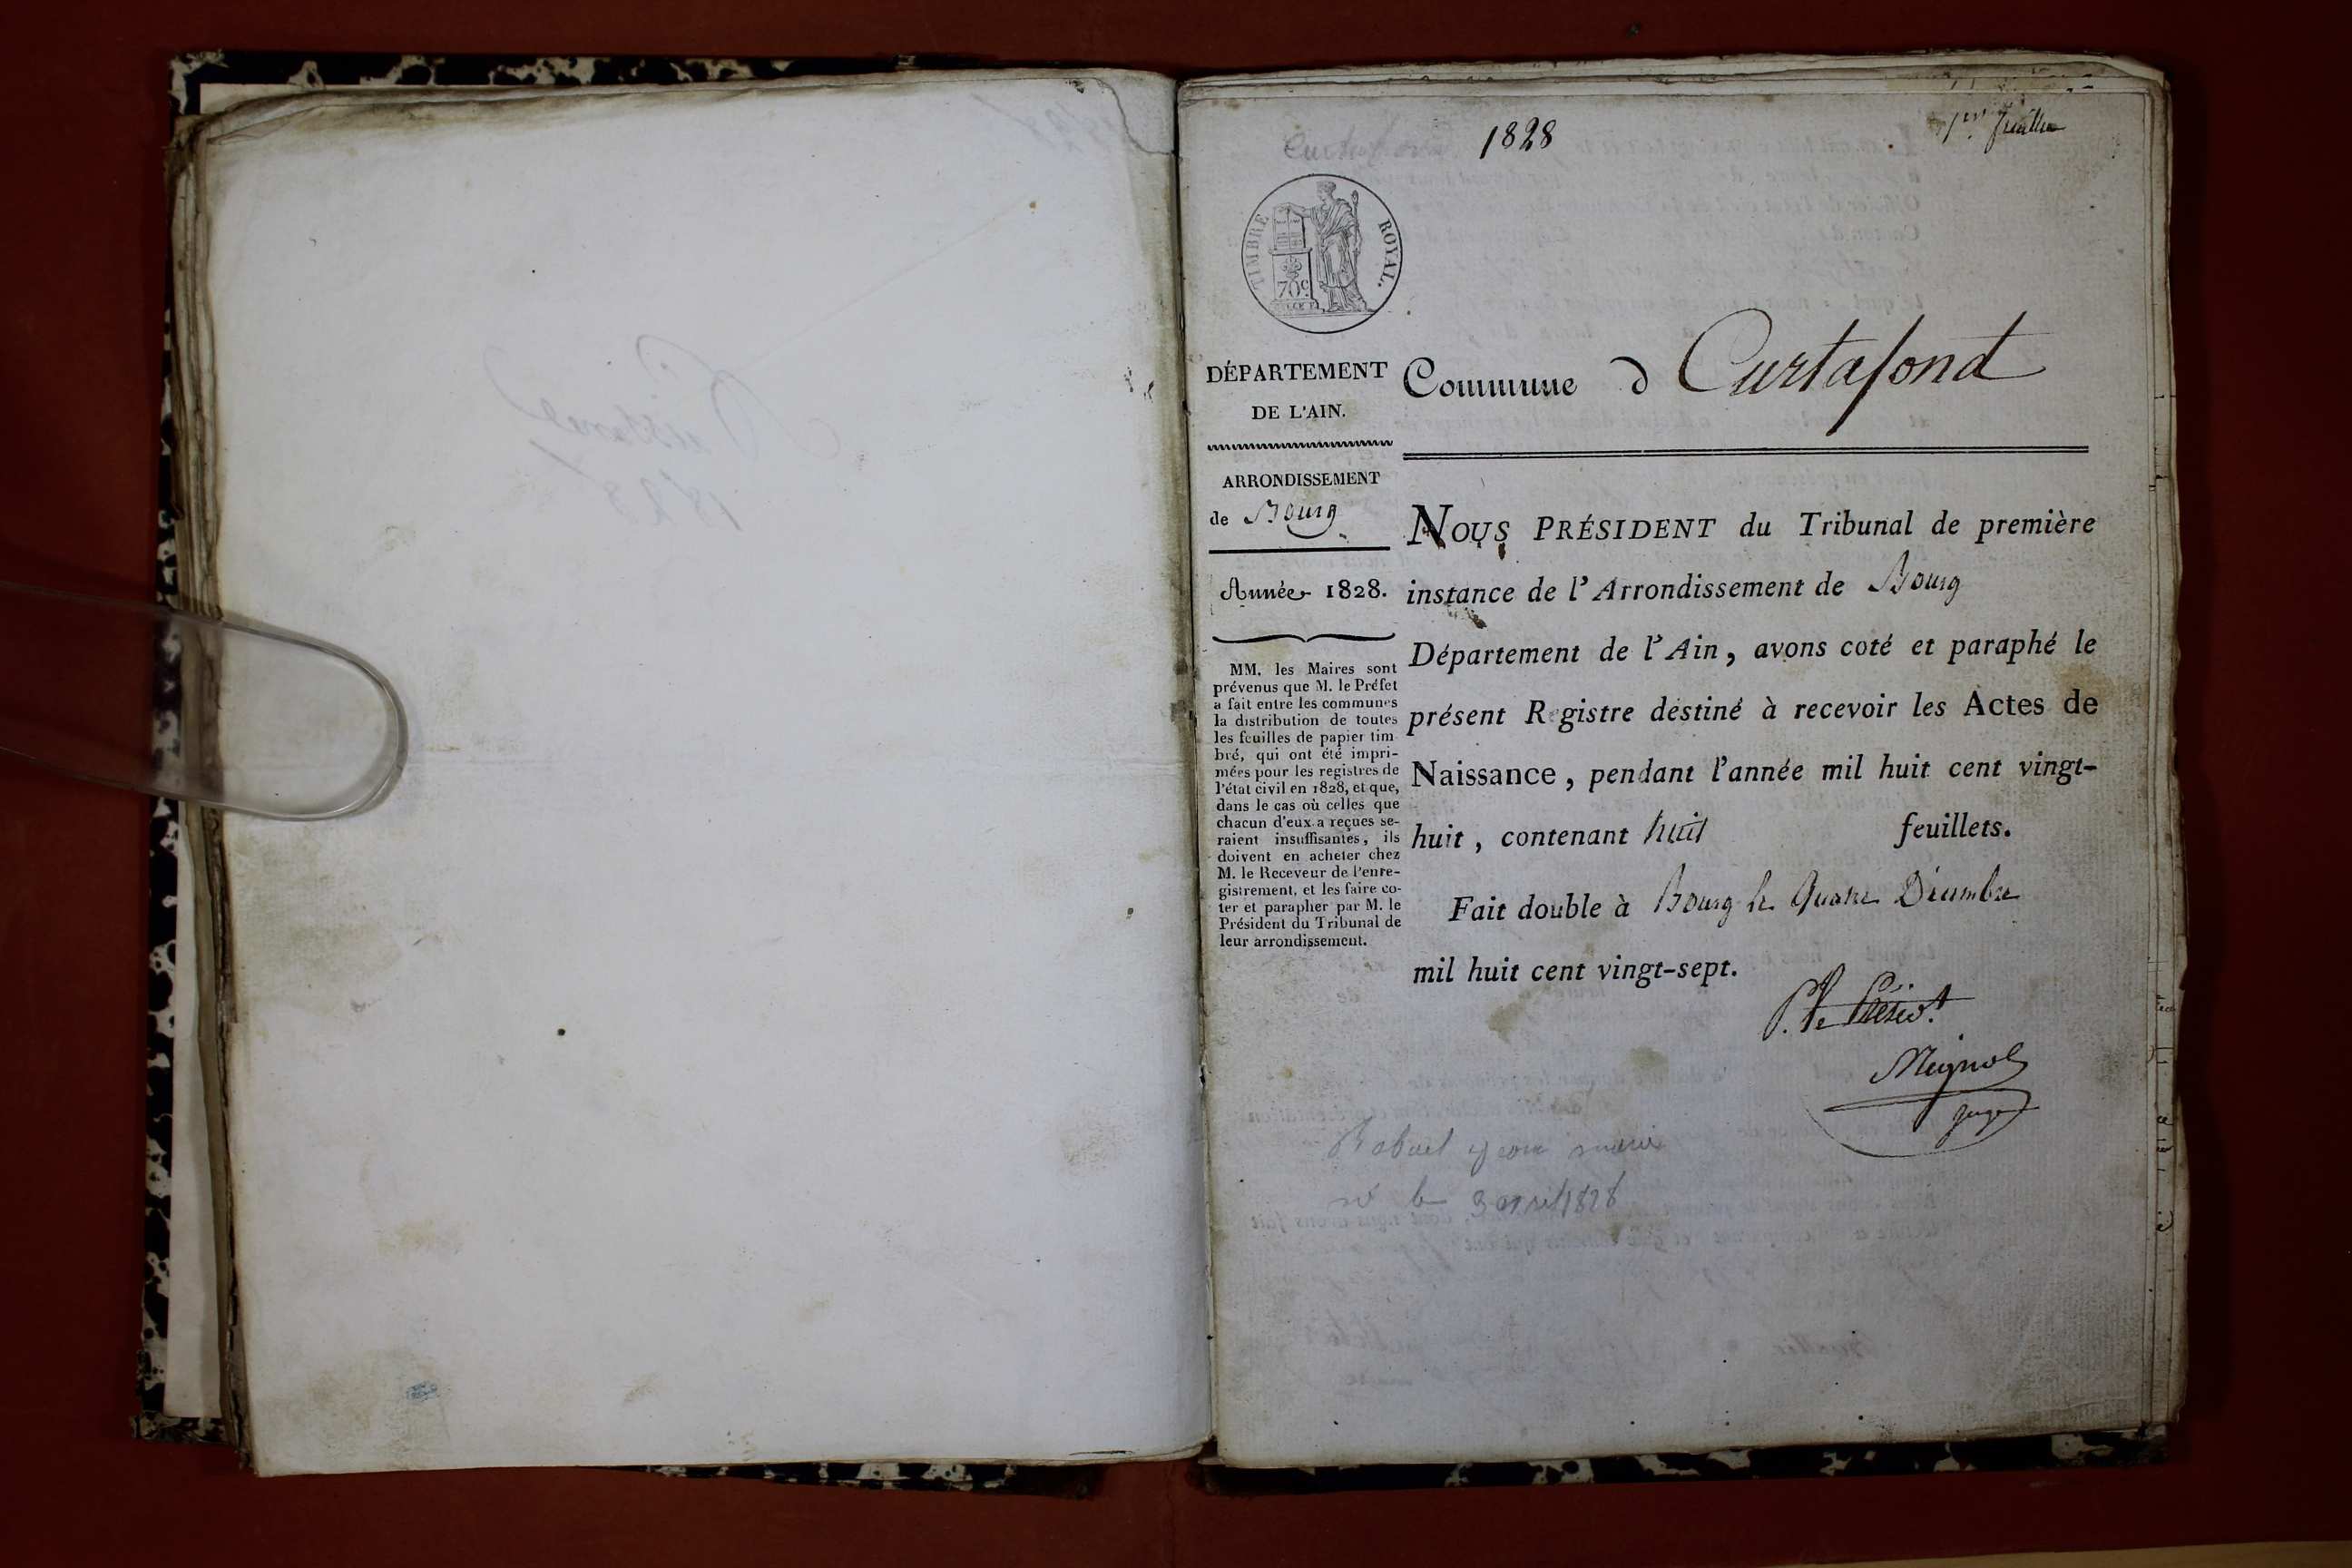 1828
1er feuillet
Curtafond
TIMBRE ROYAL.
70c
DÉPARTEMENT
DE L'AIN.
ARRONDISSEMENT
de Bourg
Année 1828.
MM. les Maires sont
prévenus que M. le Préfet
a fait entre les communes
la distribution de toutes
les feuilles de papier tim
bré, qui ont été impri-
mées pour les registres de
l'état civil en 1828, et que,
dans le cas où celles que
chacun d'eux a reçues se-
raient insuffisantes, ils
doivent en acheter chez
M. le Receveur de l'enre-
gistrement, et les faire co-
ter et parapher par M. le
Président du Tribunal de
leur arrondissement.
Commune d Curtafond
NOUS PRÉSIDENT du Tribunal de première
instance de l'Arrondissement de Bourg
Département de l'Ain, avons coté et paraphé le
présent Registre destiné à recevoir les Actes de
Naissance, pendant l'année mil huit cent vingt-
huit, contenant huit feuillets.
Fait double à Bourg le Quatre Décembre
mil huit cent vingt-sept.
P. le Présidt.
Mignol
juge
jean marie
né le 3 avril 1828